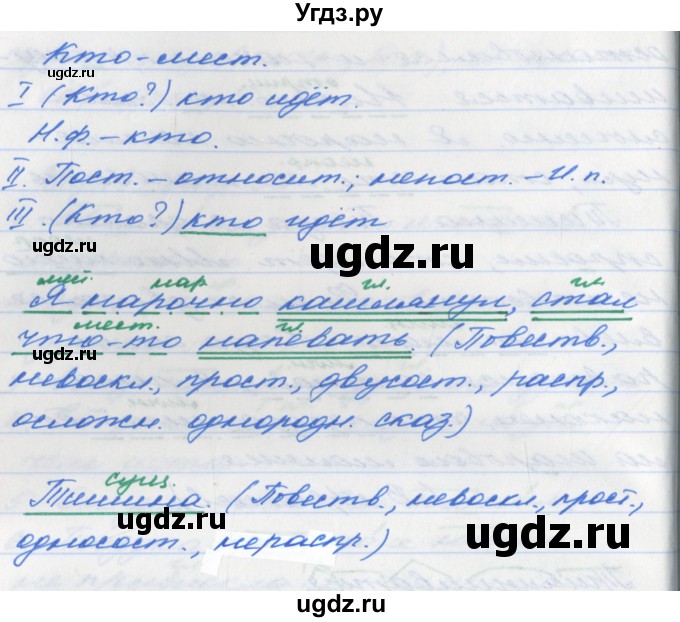 Угдз.ру
Кто – мест.
I (Кто?) кто идёт.
Н.ф. – кто.
II. Пост. – относит.; непост. – И. п.
III. (Кто?) кто идёт
мест. нар. гл. гл.
Я нарочно кашлянул, стал
мест. гл.
что-то напевать. (Повеств.,
невоскл., прост., двусост., распр.,
осложн. однородн. сказ.)
сущ.
Тишина. (Повеств., невоскл., прост.,
односост., нераспр.)
ugdz.ru
ugdz.ru
ugdz.ru
ugdz.ru
ugdz.ru
ugdz.ru
ugdz.ru
ugdz.ru
ugdz.ru
ugdz.ru